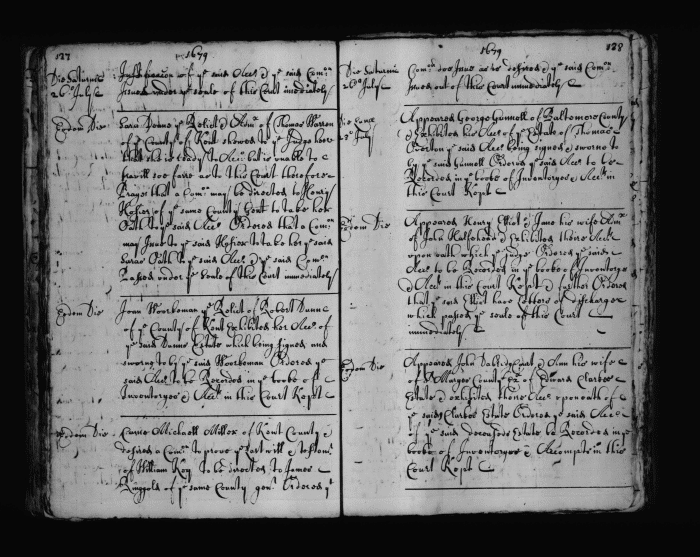 127
1679
Die Saturnis
26º July
Justification of ye said Acct. & ye said Comn.
Issued under ye seale of this Court imediately
Eodem Die
Sara Downe ye Relict & Admx. of Thomas Warren
of ye County of Kent shewed to ye Judge here
that she is ready to Acct. but is unable to
travill soe farr as to this Court therefore
Prayes that a Comn. may be directed to Henry
Hosier of ye same County Gent to take her
Oath to ye said Acct. Ordered that a Comn.
may Issue to ye said Hosier to take her ye said
Saras Oath to ye said Acct. & ye said Comn.
Passed under ye Seale of this Court imediately
Eodem Die
Joan Workeman ye Relict of Robert Dunne
of ye County of Kent Exhibited her Acct. of
ye said Dunns Estate which being signed and
sworne to by ye said Workeman Ordered ye
said Acct. to be Recorded in ye booke of
Inventoryes & Acct. in this Court Kept
Eodem Die
Came Michaell Miller of Kent County &
desired a Comn. to prove ye last will & testamt.
of William Key to be directed to James
Ringgold of ye same County gent. Ordered yt
128
1679
Die Saturnis
26º July
Comn. doe Issue as he desired & ye said Comn.
Issued out of this Court imediately
Die Lunæ
28º July
Appeared George Gunnell of Baltemore County
& Exhibited his Acct. of ye Estate of Thomas
Overton ye said Acct. being signed & sworne to
by ye said Gunnell Ordered ye said Acct. to be
Recorded in ye booke of Inventoryes & Acct. in
this Court Kept
Eodem Die
Appeared Henry Elliot & Jane his wife Admx.
of John Halfehead & Exhibited theire Acct.
upon oath which ye Judge Ordered ye said
Acct. to be Recorded in ye booke of Inventorys
& Acct. in this Court Kept & further Ordered
that ye said Elliot have Letters of discharge
which passed ye seale of this Court
imediately
Eodem Die
Appeared John & Ann his wife
of St Maryes County Ex. of Edward Clarkes
Estate & exhibited theire Acct. upon oath of
ye said Clarkes Estate Ordered ye said Acct.
of ye said deceaseds Estate be Recorded in ye
booke of Inventoryes & Accompts in this
Court Kept